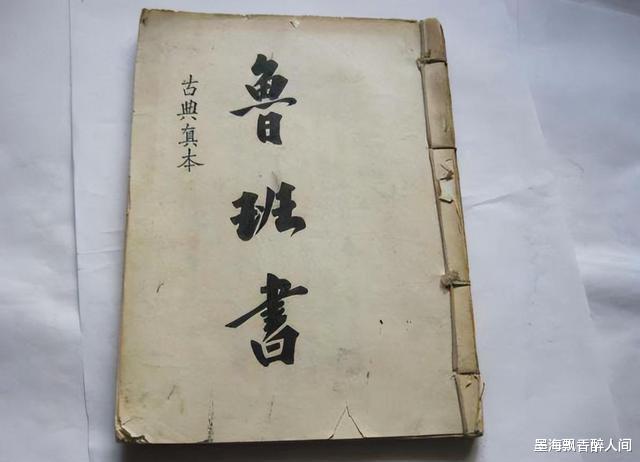 魯班書
古典真本
墨海飘香醉人间